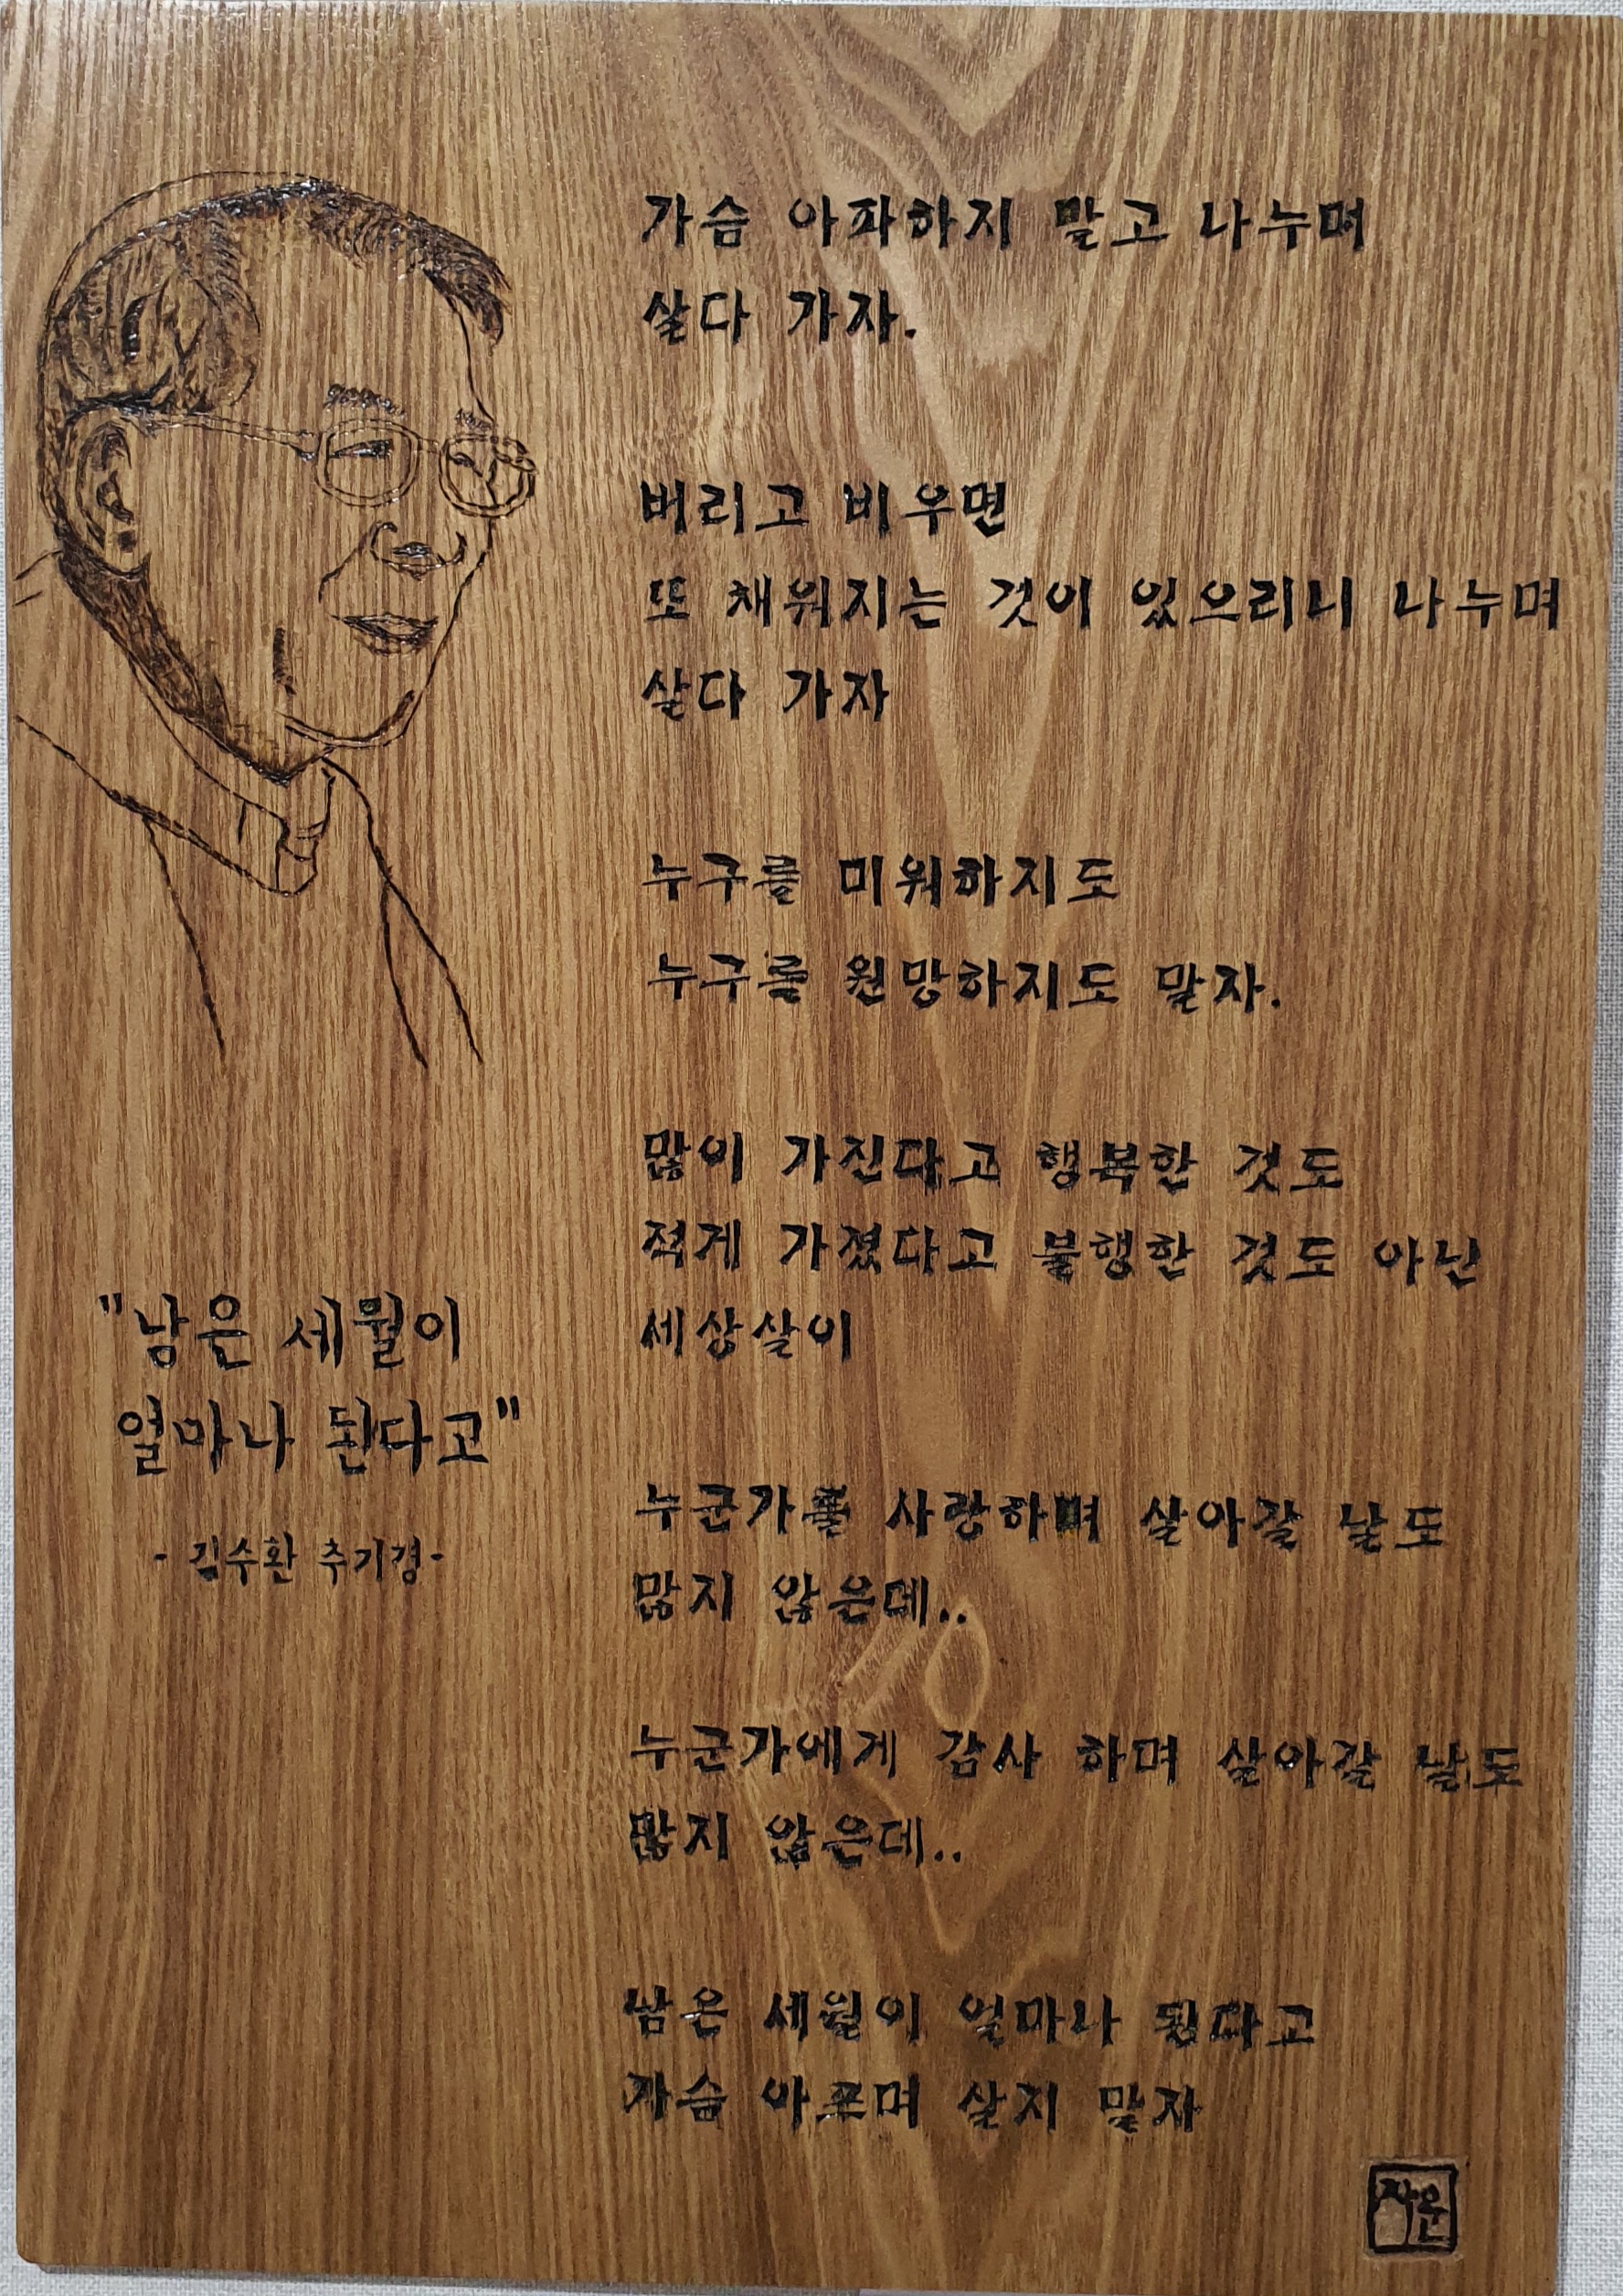 가슴 아파하지 말고 나누며
살다 가자.
버리고 비우면
또 채워지는 것이 있으리니 나누며
살다 가자
누구를 미워하지도
누구를 원망하지도 말자.
많이 가진다고 행복한 것도
적게 가졌다고 불행한 것도 아닌
세상살이
"남은 세월이
얼마나 된다고"
- 김수환 추기경-
누군가를 사랑하며 살아갈 날도
많지 않은데..
누군가에게 감사 하며 살아갈 날도
많지 않은데..
남은 세월이 얼마나 된다고
가슴 아프며 살지 말자